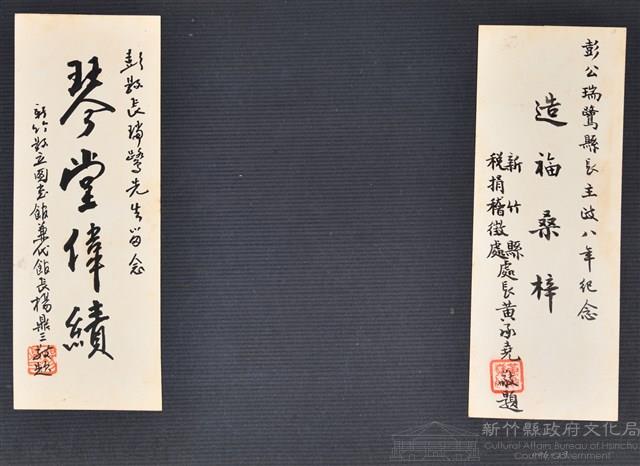 彭公瑞鷺縣長主政八年紀念
造福桑梓
新竹縣
税捐稽徵處處長黃承堯敬題
彭縣長瑞鷺先生留念
琴堂偉績
新竹縣立圖書館兼代館長楊鼎三敬題
新竹縣政府文化局
Cultural Affairs Bureau of Hsinchu
County Government